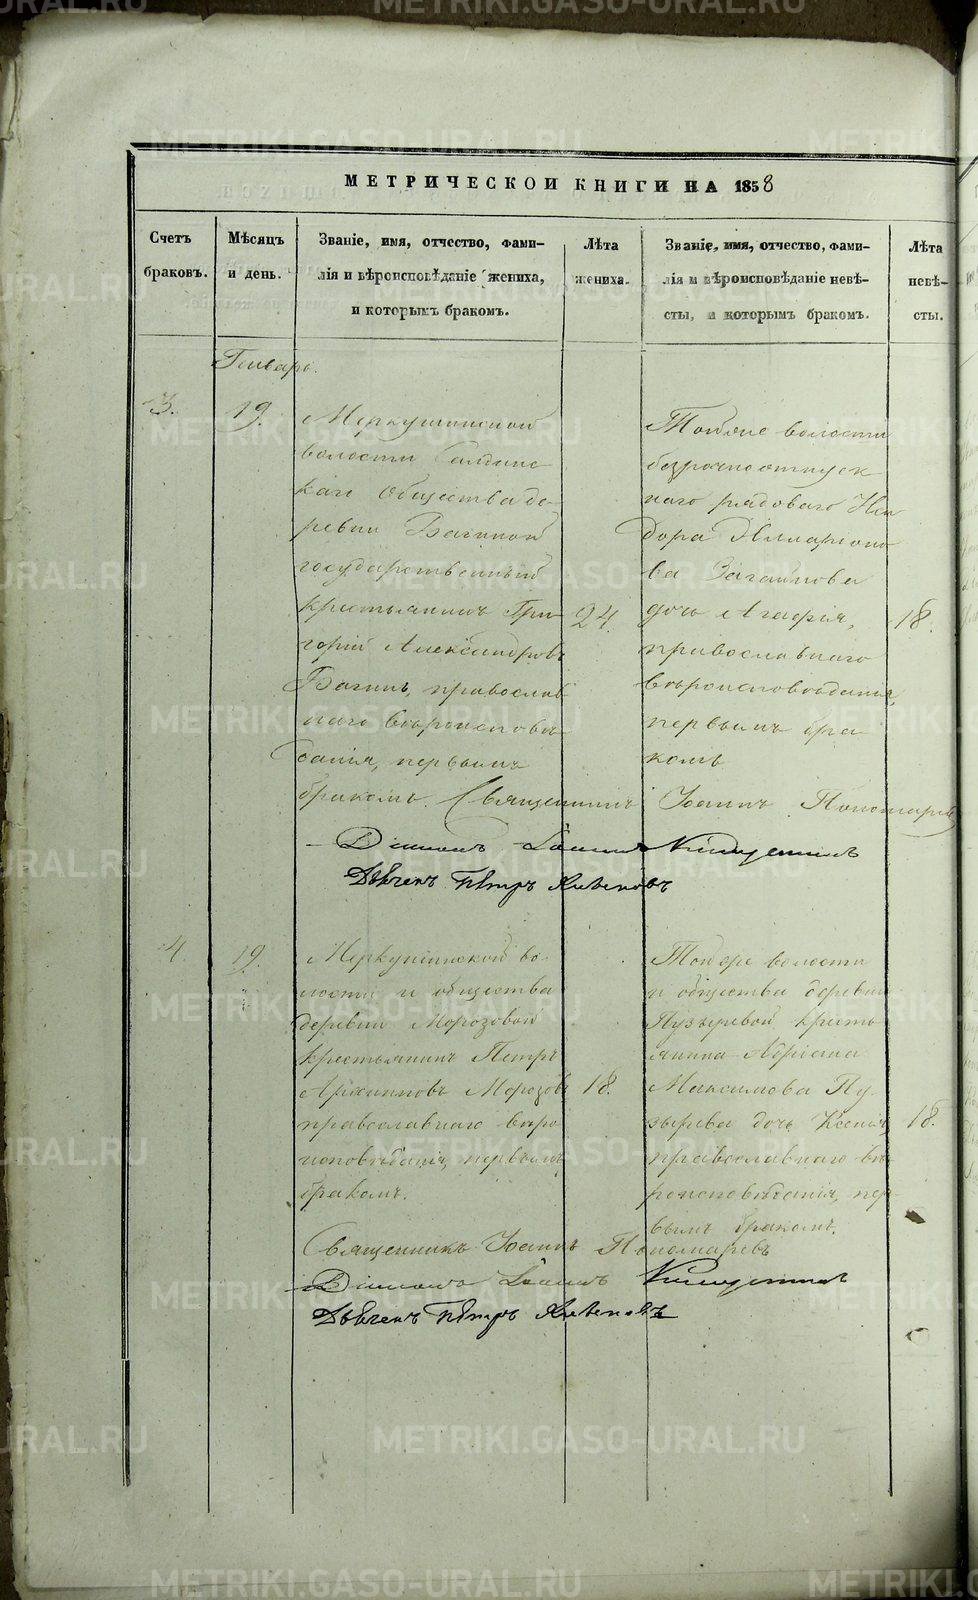 МЕТРИЧЕСКОИ КНИГИ НА 1858
Счетъ браковъ.
Мѣсяцъ и день.
Званіе, имя, отчество, фами-
лія и вѣроисповѣданіе жениха,
и которымъ бракомъ.
Лѣта жениха.
Званіе, имя, отчество, фами-
лія и вѣроисповѣданіе невѣ-
сты, и которымъ бракомъ.
Лѣта невѣ-
сты.
Генварь.
3.
19.
Меркушинской
волости
каго Общества де-
ревни Вагиной
государственный
крестьянинъ Гри-
горій Александровъ
Вагинъ, православ
наго вѣроисповѣ
данія, первымъ
бракомъ.
24.
Тойже волости
безсрочноотпуск
наго рядоваго
дора Илларіоно
ва Загайнова
дочь Агафія,
православнаго
вѣроисповѣданія,
первымъ бра
комъ
18.
Священникъ Іоаннъ Пономаревъ
Діаконъ Іоаннъ
Дьячекъ Петръ
4.
19.
Меркушинской во-
лости и общества
деревни Морозовой
крестьянинъ Петръ
Морозовъ
православнаго вѣро
исповѣданія, первымъ
бракомъ.
18.
Тойже волости
и общества деревни
Пузыревой кресть
янина Адріана
Максимова Пу
зырева дочь Ксенія,
православнаго вѣ
роисповѣданія, пер
вымъ бракомъ.
18.
Священникъ Іоаннъ Пономаревъ
Діаконъ Іоаннъ
Дьячекъ Петръ
METRIKI.GASO-URAL.RU